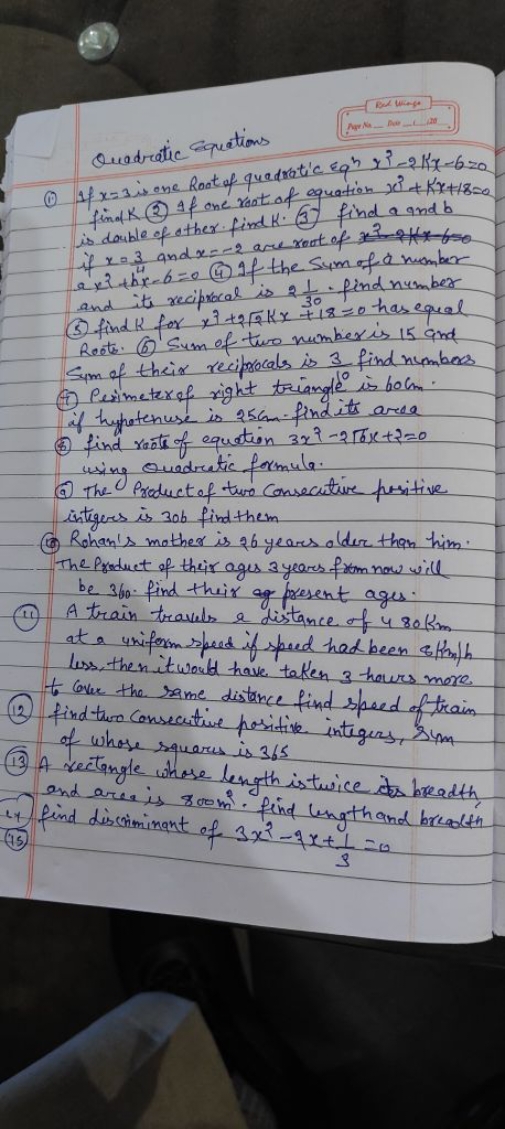 Red Wings
Page No. Date / /20
Quadratic Equations
① If x=3 is one Root of quadratic Eqⁿ x²-2Kx-6=0
find K ② If one root of equation x²+Kx+18=0
is double of other. find K. ③ find a and b
if x=3/4 and x=-2 are root of x²-2Kx-6=0
ax²+bx-6=0 ④ If the Sum of a number
and its reciprocal is 2 1/30. find number
⑤ find K for x²+2√2Kx+18=0 has equal
Roots. ⑥ Sum of two number is 15 and
Sum of their reciprocals is 3/10 find numbers
⑦ Perimeter of right triangle is 60cm.
if hypotenuse is 25cm. find its area
⑧ find roots of equation 3x²-2√6x+2=0
using Quadratic formula.
⑨ The Product of two Consecutive positive
integers is 306 find them
⑩ Rohan's mother is 26 years older than him.
The Product of their ages 3 years from now will
be 360. find their ag present ages.
⑪ A train travels a distance of 480Km
at a uniform speed if speed had been 8Km/h
less, then it would have taken 3 hours more
to Cover the same distance find speed of train
⑫ find two Consecutive positive integers, Sum
of whose squares is 365
⑬ A rectangle whose length is twice its breadth,
and area is 800m². find length and breadth
14 find discriminant of 3x²-2x+1/3=0
⑮